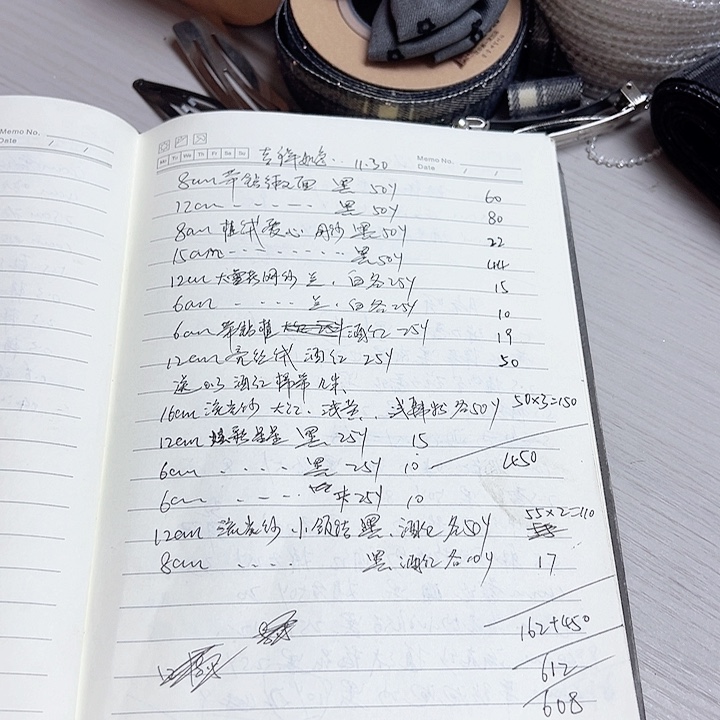 Memo No.
Date / /
Mo Tu We Th Fr Sa Su
吉祥如意.. 11.30
Memo No.
Date / /
8cm 带钻绒面 黑 50Y 60
12cm - - - - - 黑 50Y 80
8cm 植绒爱心 网纱 黑 50Y 22
15cm - - - - - - - - 黑 50Y 44
12cm 大雪花网纱 兰.白各25Y 15
6cm - - - - 兰.白各25Y 10
6cm 带钻 酒红 25Y 19
12cm 亮丝绒 酒红 25Y 50
送 0.3 酒红 棉带
16cm 流光纱 大红.浅黄. 各50Y 50×3=150
12cm 炫彩星星 黑 25Y 15
6cm - - - - 黑 25Y 10
450
6cm - - - 25Y 10
12cm 流光纱 小领结 黑.酒红各50Y 55×2=110
8cm - - - - 黑.酒红各10Y 17
162+450
612
608